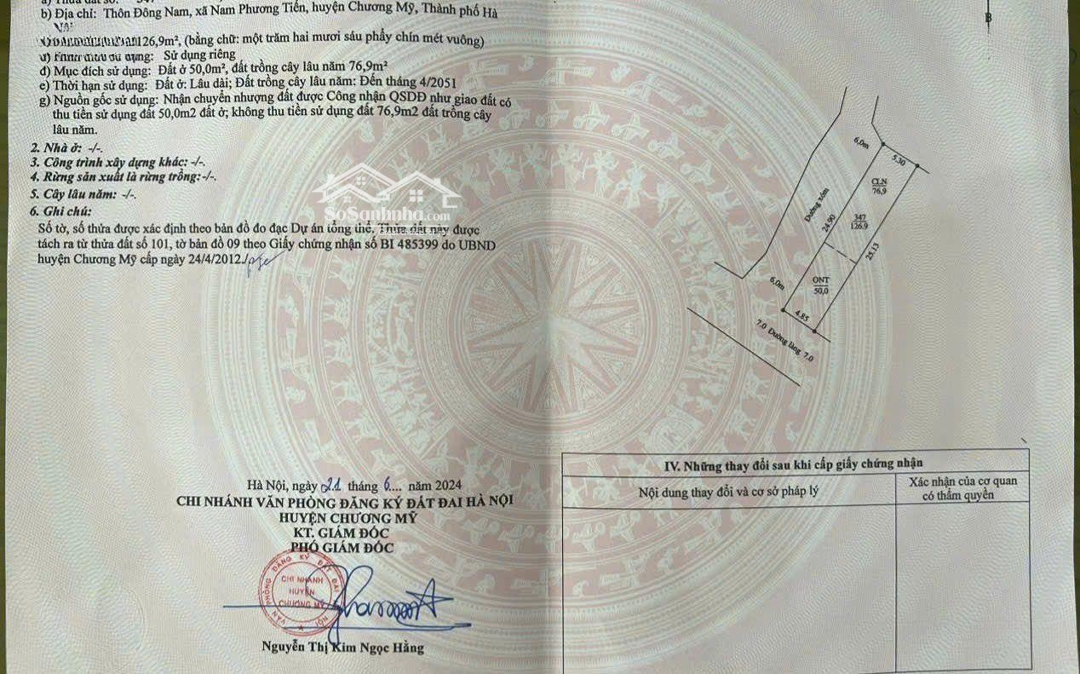 b) Địa chỉ: Thôn Đông Nam, xã Nam Phương Tiến, huyện Chương Mỹ, Thành phố Hà
Nội
126,9m², (bằng chữ: một trăm hai mươi sáu phẩy chín mét vuông)
Sử dụng riêng
đ) Mục đích sử dụng: Đất ở 50,0m², đất trồng cây lâu năm 76,9m²
e) Thời hạn sử dụng: Đất ở: Lâu dài; Đất trồng cây lâu năm: Đến tháng 4/2051
g) Nguồn gốc sử dụng: Nhận chuyển nhượng đất được Công nhận QSDĐ như giao đất có
thu tiền sử dụng đất 50,0m2 đất ở; không thu tiền sử dụng đất 76,9m2 đất trồng cây
lâu năm.
2. Nhà ở: -/-.
3. Công trình xây dựng khác: -/-.
4. Rừng sản xuất là rừng trồng:-/-.
5. Cây lâu năm: -/-.
6. Ghi chú:
Số tờ, số thửa được xác định theo bản đồ đo đạc Dự án tổng thể, Thửa đất này được
tách ra từ thửa đất số 101, tờ bản đồ 09 theo Giấy chứng nhận số BI 485399 do UBND
huyện Chương Mỹ cấp ngày 24/4/2012./.
SoSanhnha.com
Hà Nội, ngày 21 tháng 6.... năm 2024
CHI NHÁNH VĂN PHÒNG ĐĂNG KÝ ĐẤT ĐAI HÀ NỘI
HUYỆN CHƯƠNG MỸ
KT. GIÁM ĐỐC
PHÓ GIÁM ĐỐC
CHI NHÁNH
HUYỆN
CHƯƠNG MỸ
Nguyễn Thị Kim Ngọc Hằng
B
6,0m
5.30
CLN
76,9
Đường xóm
24.90
347
126.9
25.13
6,0m
ONT
50,0
4.85
7.0 Đường làng 7.0
IV. Những thay đổi sau khi cấp giấy chứng nhận
Nội dung thay đổi và cơ sở pháp lý
Xác nhận của cơ quan
có thẩm quyền